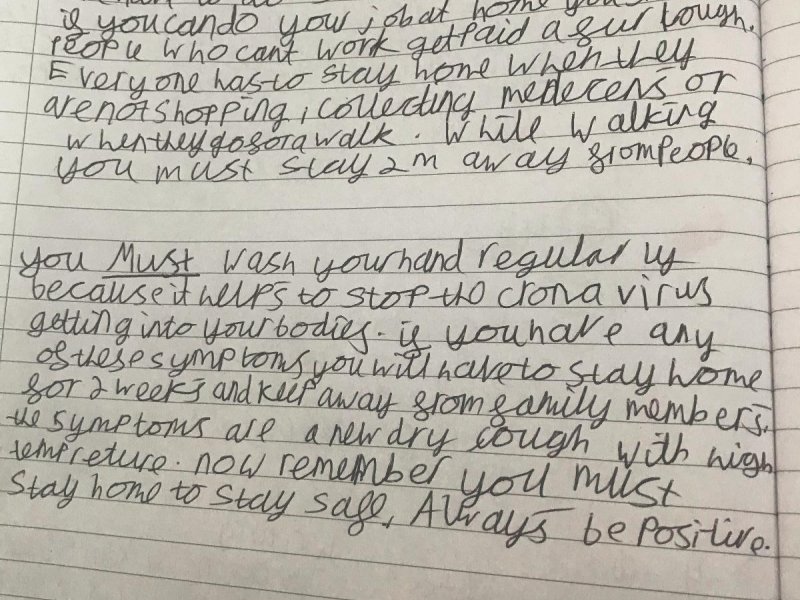 if you can do your job at home you
People who cant work get Paid a furlough.
Everyone has to stay home when they
are not shopping, collecting medecens or
when they go for a walk. While walking
you must stay 2m away from People.
you Must wash your hand regularly
because it helps to stop the crona virus
getting into your bodies. if you have any
of these symptoms you will have to stay home
for 2 weeks and keep away from family members.
the symptoms are a new dry cough with high
tempreture. now remember you must
stay home to stay safe, Always be Positive.